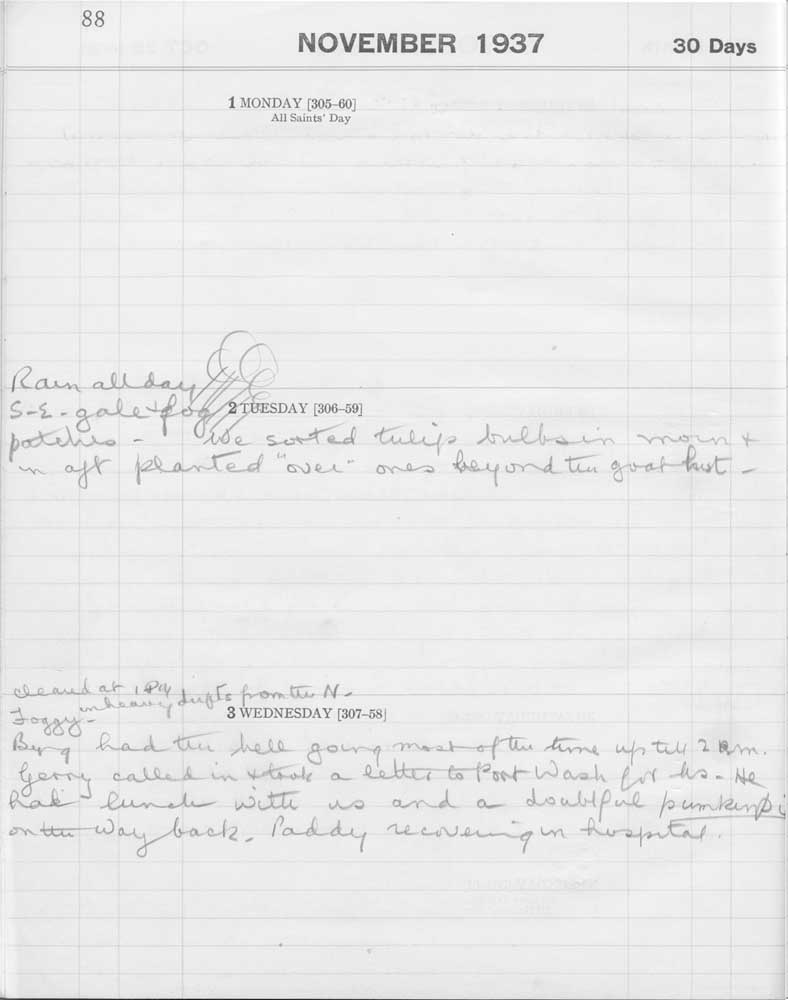 88
NOVEMBER 1937
30 Days
1 MONDAY [305–60]
All Saints' Day
Rain all day
S-E- gale & fog
2 TUESDAY [306–59]
patches - We sorted tulip bulbs in morn &
in aft planted "over" ones beyond the goat hut -
cleared at 1 PM in heavy drifts from the N -
Foggy -
3 WEDNESDAY [307–58]
Byng had the bell going most of the time up till 2 P.m.
Gerry called in & took a letter to Port Wash for us - He
had lunch with us and a doubtful pumkin
on the way back. Paddy recovering in hospital.